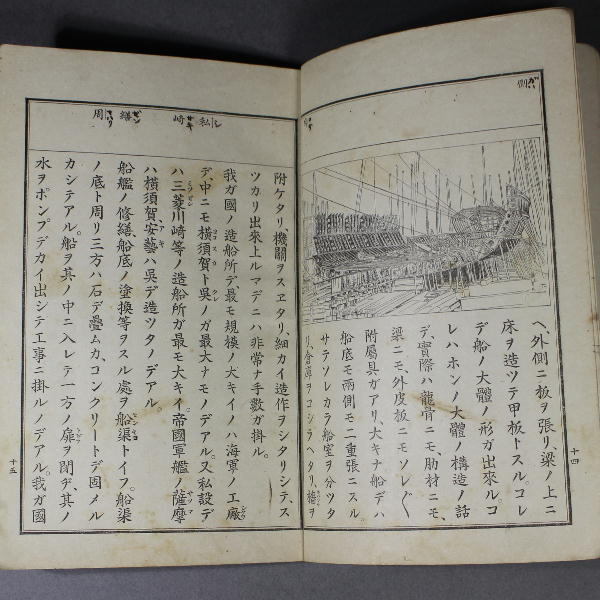 側
ヘ、外側ニ板ヲ張リ、梁ノ上ニ
床ヲ造ツテ甲板トスル。コレ
デ船ノ大體ノ形ガ出來ル。コ
レハホンノ大體ノ構造ノ話
デ、實際ハ龍骨ニモ、肋材ニモ、
梁ニモ外皮板ニモソレ〲
附屬具ガアリ、大キナ船デハ
船底モ兩側モ二重張ニスル。
サテソレカラ船室ヲ分ツタ
リ、倉庫ヲコシラヘタリ、檣ヲ
十四
私
崎
繕
周
附ケタリ機關ヲスヱタリ、細カイ造作ヲシタリシテ、ス
ツカリ出來上ルマデニハ非常ナ手數ガ掛ル。
我ガ國ノ造船所デ、最モ規模ノ大キイノハ海軍ノ工廠
デ、中ニモ横須賀ト呉ノガ最大ナモノデアル。又私設デ
ハ三菱川崎等ノ造船所ガ最モ大キイ。帝國軍艦ノ薩摩
ハ横須賀、安藝ハ呉デ造ツタノデアル。
船艦ノ修繕、船底ノ塗換等ヲスル處ヲ船渠トイフ。船渠
ノ底ト周リ三方ハ石デ疊ムカ、コンクリートデ固メル
カシテアル。船ヲ其ノ中ニ入レテ一方ノ扉ヲ閉ヂ、其ノ
水ヲポンプデカイ出シテ工事ニ掛ルノデアル。我ガ國
十五